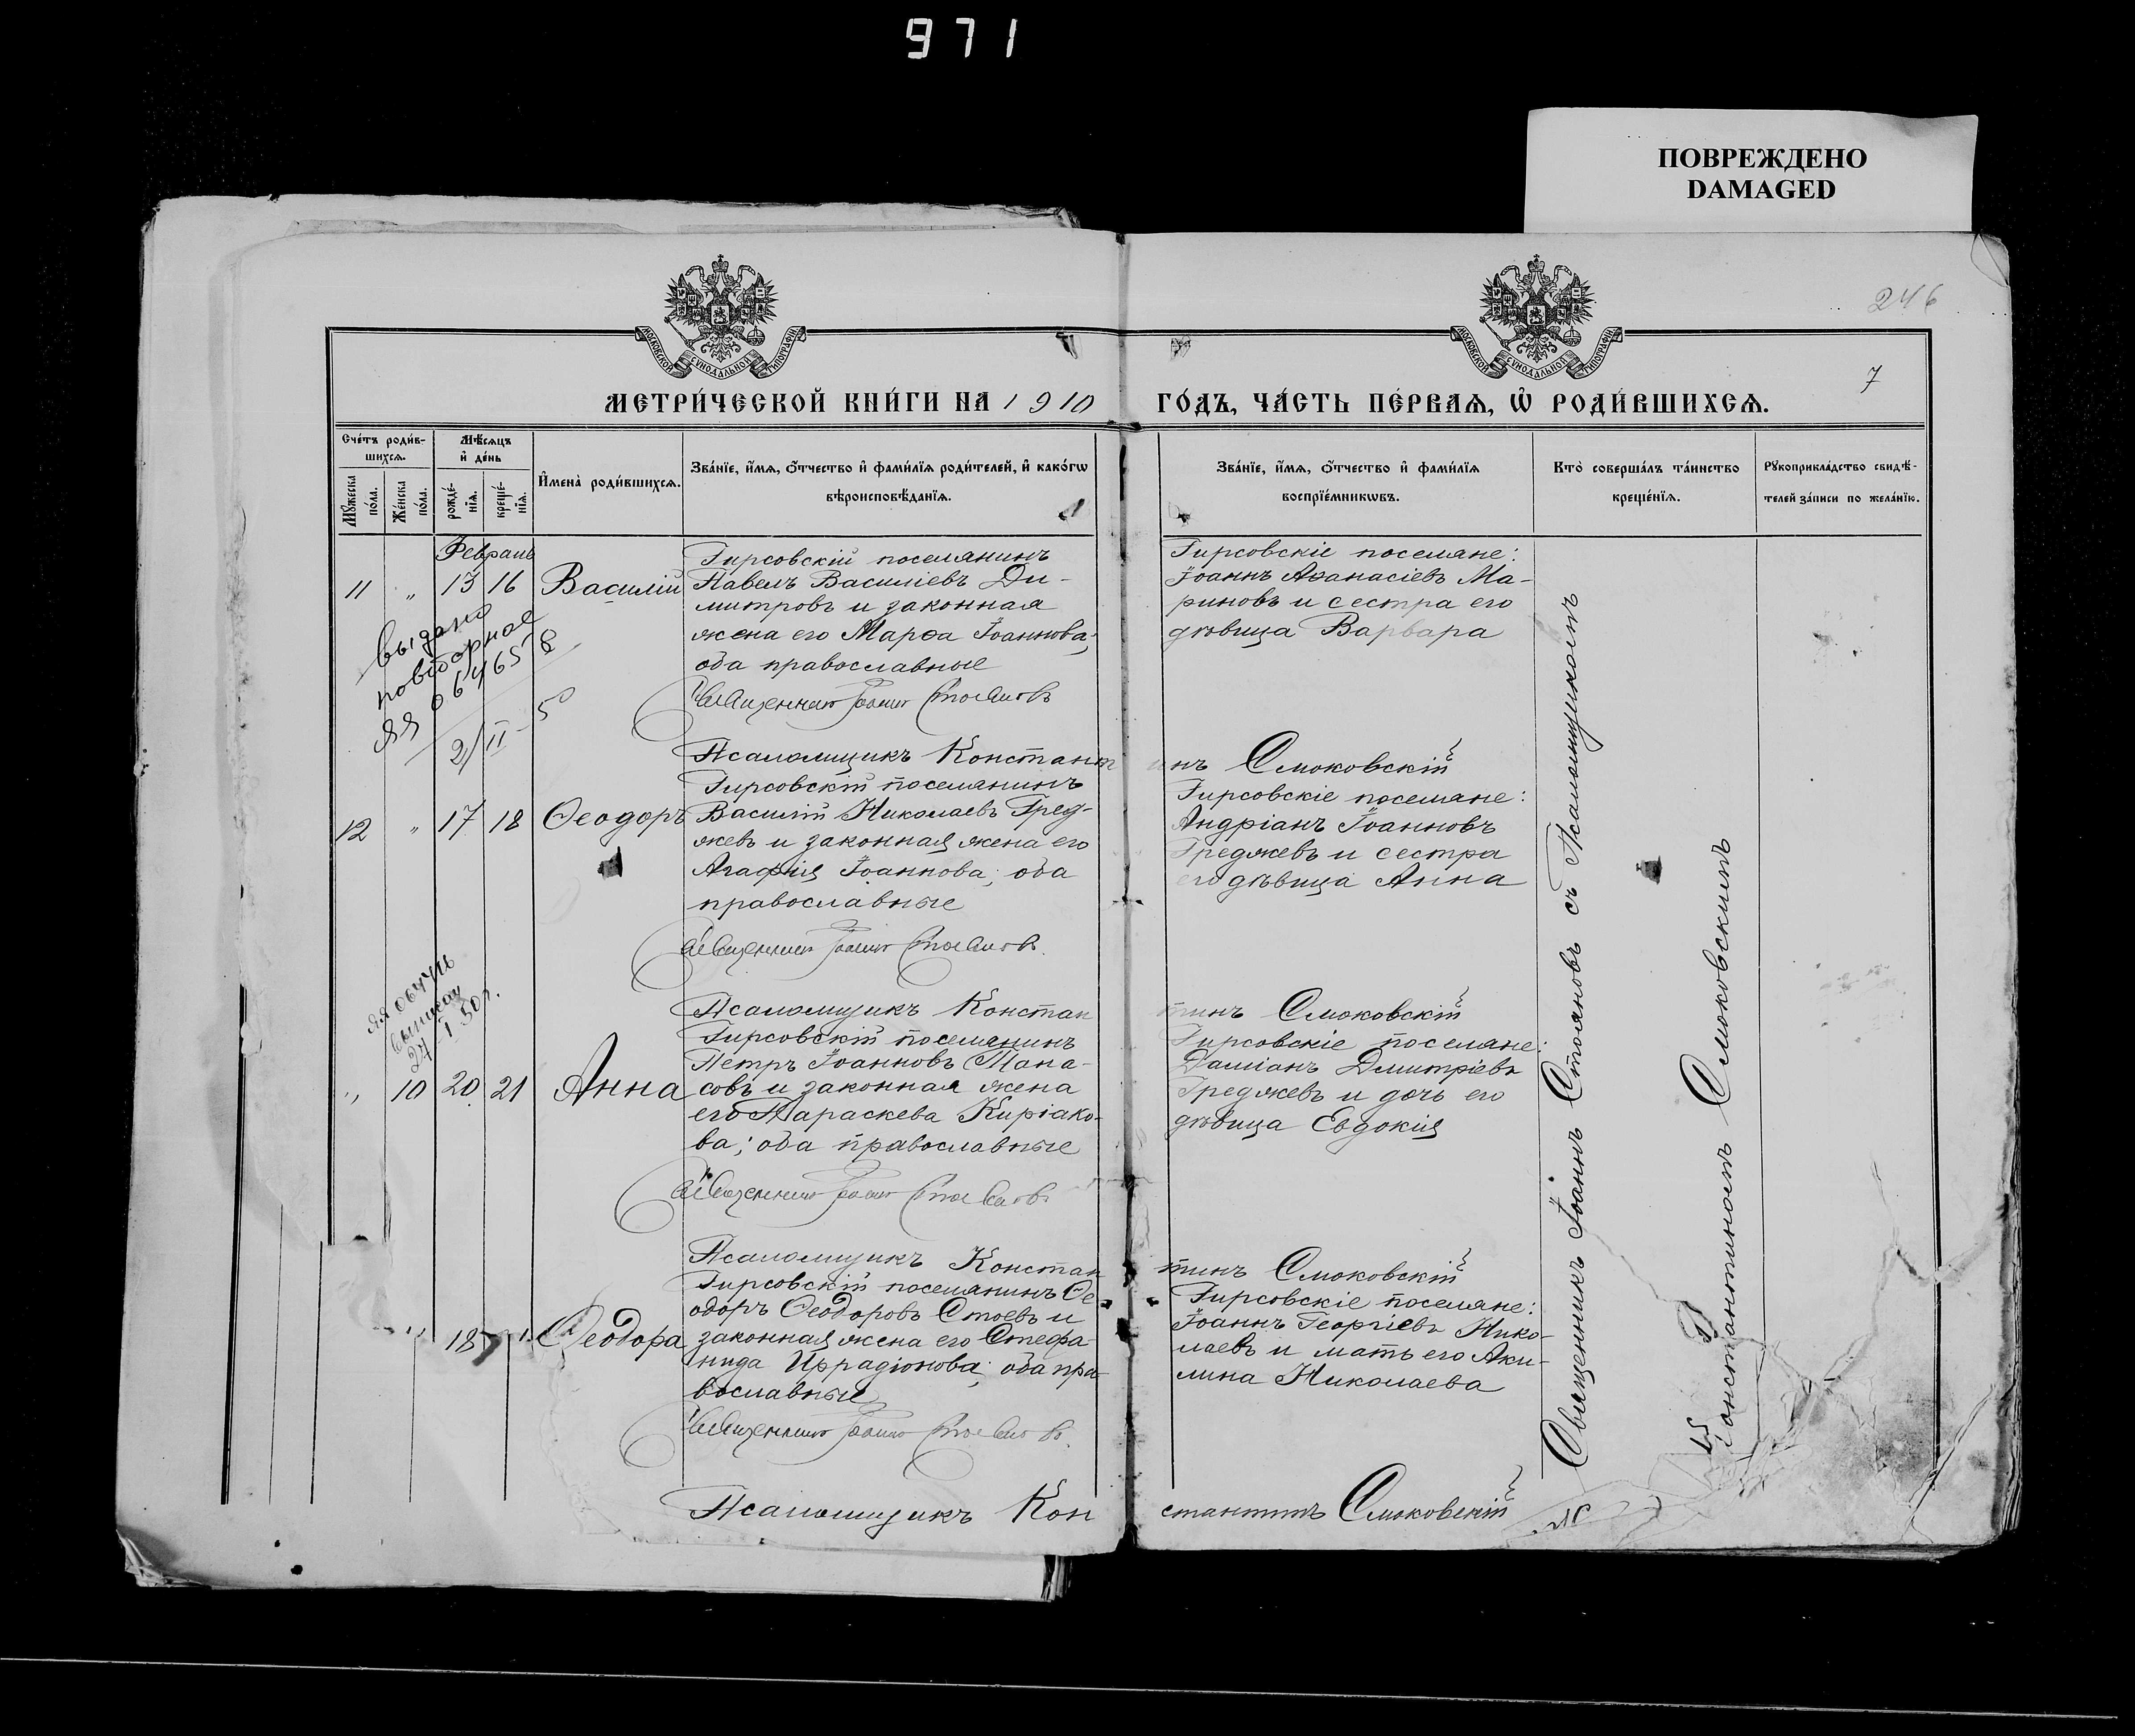 971
ПОВРЕЖДЕНО
DAMAGED
246
7
МОСКОВСКОЙ СѴНОДАЛЬНОЙ ТИПОГРАФІИ
МОСКОВСКОЙ СѴНОДАЛЬНОЙ ТИПОГРАФІИ
МЕТРИ́ЧЕСКОЙ КНИ́ГИ НА 1910 ГО́ДЪ, ЧА́СТЬ ПЕ́РВАѦ, Ѡ҆ РОДИ́ВШИХСѦ.
Сче́тъ роди́в-
шихсѧ.
Мꙋ́жеска по́ла.
Же́нска по́ла.
Мѣ́сѧцъ
и҆ де́нь
рожде́-
нїѧ.
креще́-
нїѧ.
И҆мена̀ роди́вшихсѧ.
Зва́нїе, и҆́мѧ, ѻ҆́тчество и҆ фами́лїѧ роди́телей, и҆ како́гѡ
вѣроисповѣ́данїѧ.
Зва́нїе, и҆́мѧ, ѻ҆́тчество и҆ фами́лїѧ
воспрїе́мникѡвъ.
Кто̀ соверша́лъ та́инство
креще́нїѧ.
Рꙋкоприкла́дство свидѣ́-
телей за́писи по жела́нїю.
Февраль
11 " 13 16 Василій
Гирсовскій поселянинъ
Павелъ Василіевъ Ди-
митровъ и законная
жена его Марѳа Іоаннова;
оба православные
Священникъ Іоаннъ Стояновъ
Гирсовскіе поселяне:
Іоаннъ Аѳанасіевъ Ма-
риновъ и сестра его
дѣвица Варвара
выдано
повторное
ЯЯ 064658
2/II 50
Псаломщикъ Константинъ Смоковскій
12 " 17 18 Ѳеодоръ
Гирсовскій поселянинъ
Василій Николаевъ Гред-
жевъ и законная жена его
Агафія Іоаннова; оба
православные
Священникъ Іоаннъ Стояновъ
Гирсовскіе поселяне:
Андріанъ Іоанновъ
Греджевъ и сестра
его дѣвица Анна
Псаломщикъ Константинъ Смоковскій
27-I 50 г.
" 10 20 21 Анна
Гирсовскій поселянинъ
Петръ Іоанновъ Тана-
совъ и законная жена
его Параскева Киріако-
ва; оба православные
Священникъ Іоаннъ Стояновъ
Гирсовскіе поселяне:
Даміанъ Димитріевъ
Греджевъ и дочь его
дѣвица Евдокія
Псаломщикъ Константинъ Смоковскій
" 18 Ѳеодора
Гирсовскій поселянинъ Ѳе
одоръ Ѳеодоровъ Стоевъ и
законная жена его Стефа-
нида Иррадіонова; оба пра-
вославные
Священникъ Іоаннъ Стояновъ
Гирсовскіе поселяне:
Іоаннъ Георгіевъ Нико-
лаевъ и мать его Аки-
лина Николаева
Псаломщикъ Константинъ Смоковскій
Священникъ Іоаннъ Стояновъ съ Псаломщикомъ
Константиномъ Смоковскимъ